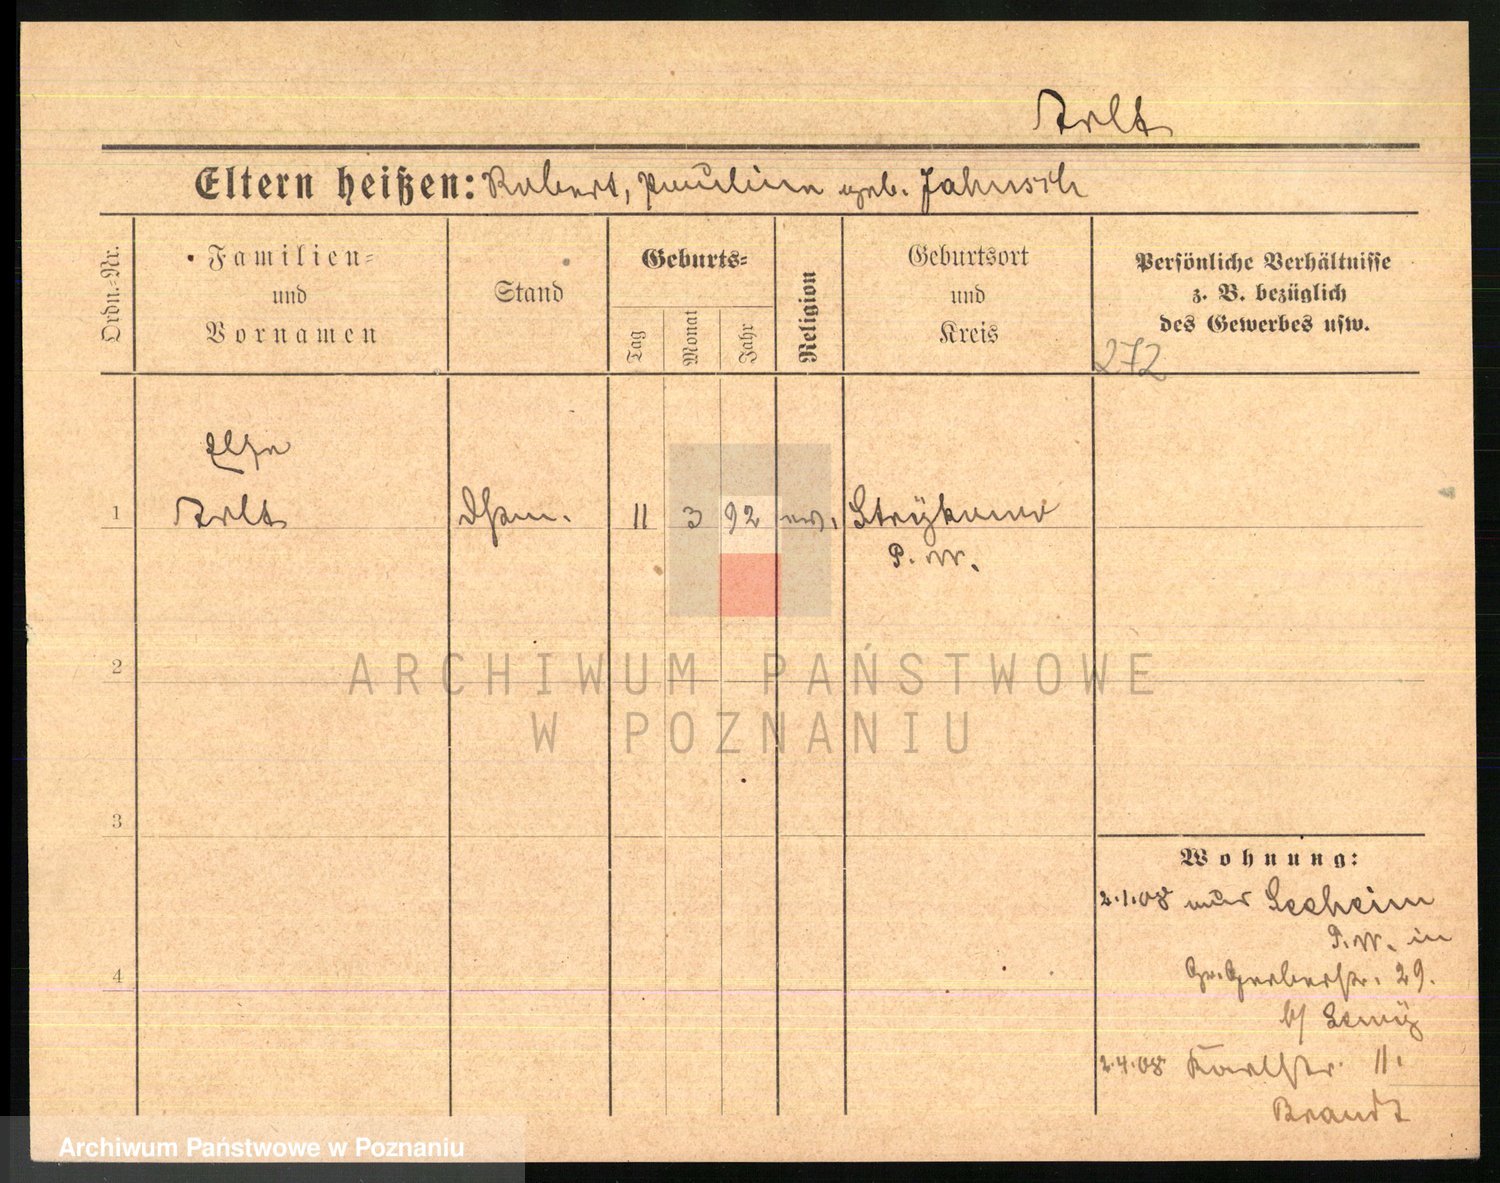 Arlt
Eltern heißen: Robert, Pauline geb. Jahnsch
Ordn.-Nr.
Familien-
und
Vornamen
Stand
Geburts-
Tag
Monat
Jahr
Religion
Geburtsort
und
Kreis
Persönliche Verhältnisse
z. B. bezüglich
des Gewerbes usw.
272
Else
1 Arlt Dstm. 11 3 92 ev. Strykowo
P. W.
2
ARCHIWUM PAŃSTWOWE
W POZNANIU
3
Wohnung:
2.1.08 aus Seeheim
P. W. in
4
Gr. Gerberstr. 29.
b/
2.4.08 Karlstr. 11.
Brandt
Archiwum Państwowe w Poznaniu